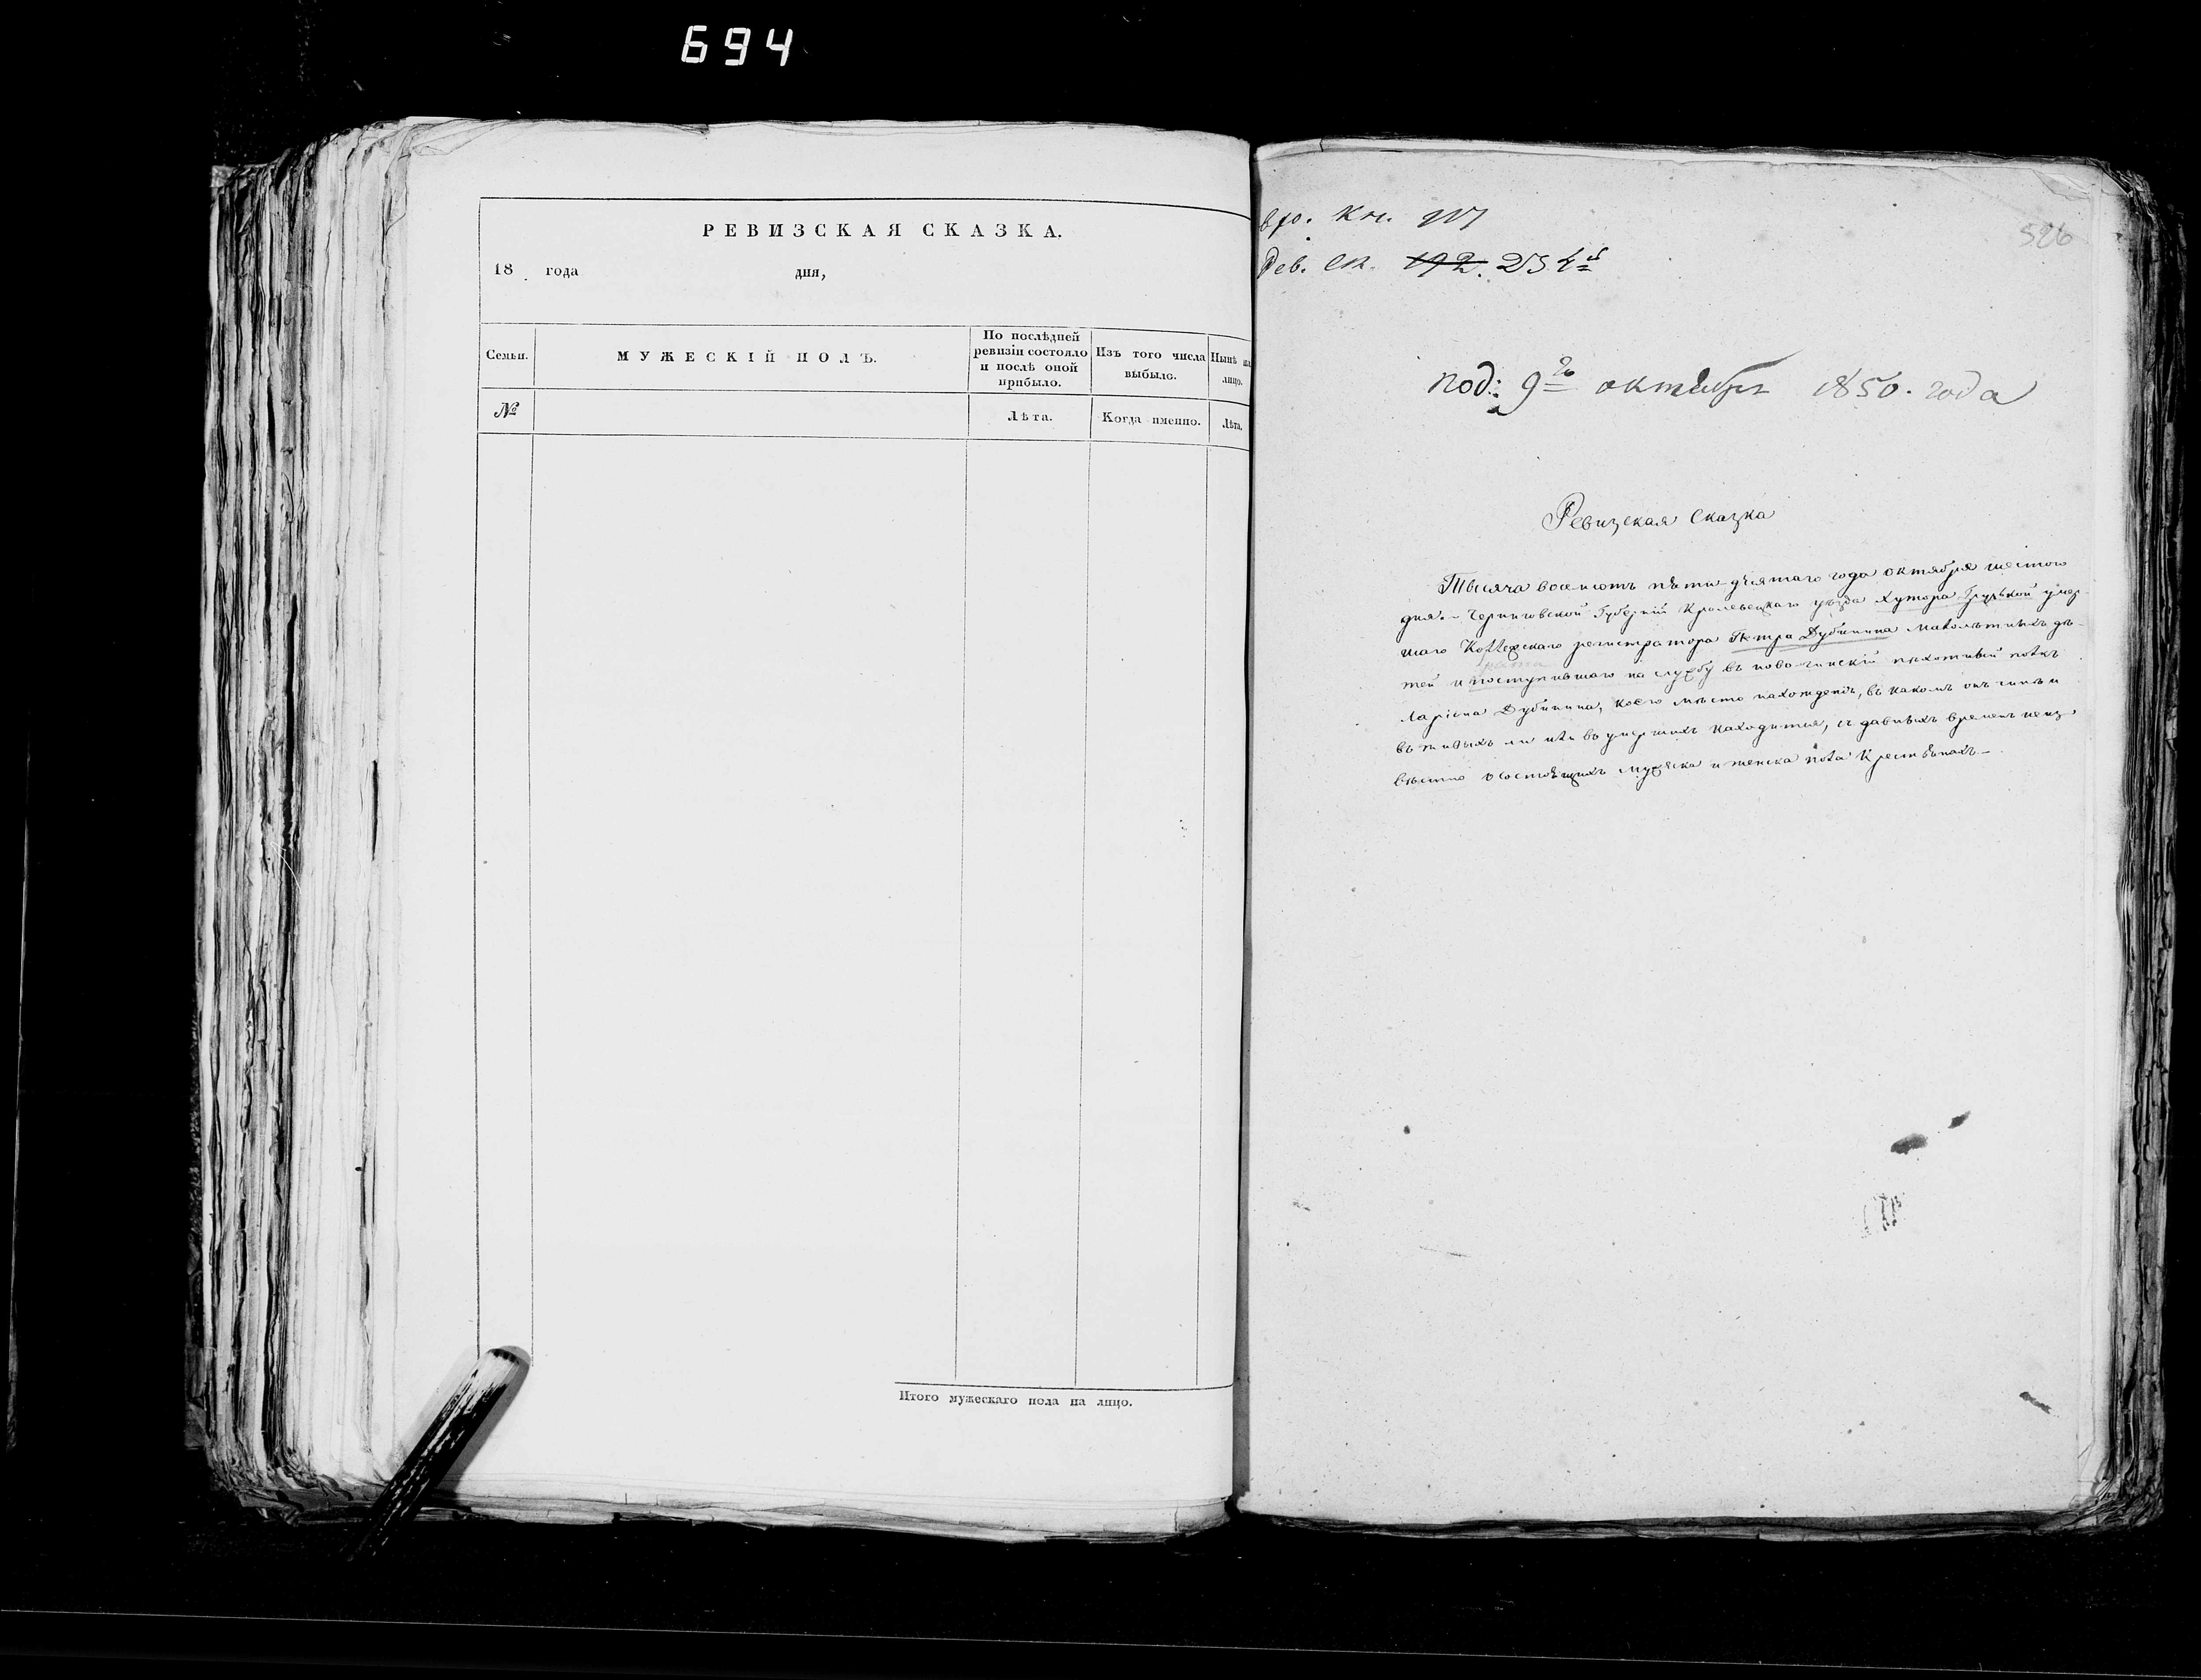 694
РЕВИЗСКАЯ СКАЗКА.
18 года дня,
Семьи.
МУЖЕСКІЙ ПОЛЪ.
По послѣдней
ревизіи состояло
и послѣ оной
прибыло.
Изъ того числа
выбыло.
Нынѣ на
лицо.
№
Лѣта.
Когда именно.
Лѣта.
Итого мужескаго пола на лицо.
кн.
526
Рев. ск. 192.
под: 9го октября 1850. года
Ревизская Сказка
Тысяча восемсотъ пятидесятаго года октября шестого
дня. Черниговской Губерніи Кролевецкаго уѣзда Хутора Грузской умер-
шаго Коллежскаго регистратора Петра Дубинина малолѣтнихъ дѣ-
тей и поступившаго на службу въ пѣхотный полкъ
Ларіона Дубинина, коего мѣсто нахожденія, въ какомъ онъ чинѣ и
въ живыхъ ли или въ умершихъ находится, съ давнихъ временъ неиз-
вѣстно о состоящихъ мужеска и женска пола Крестьянахъ.—